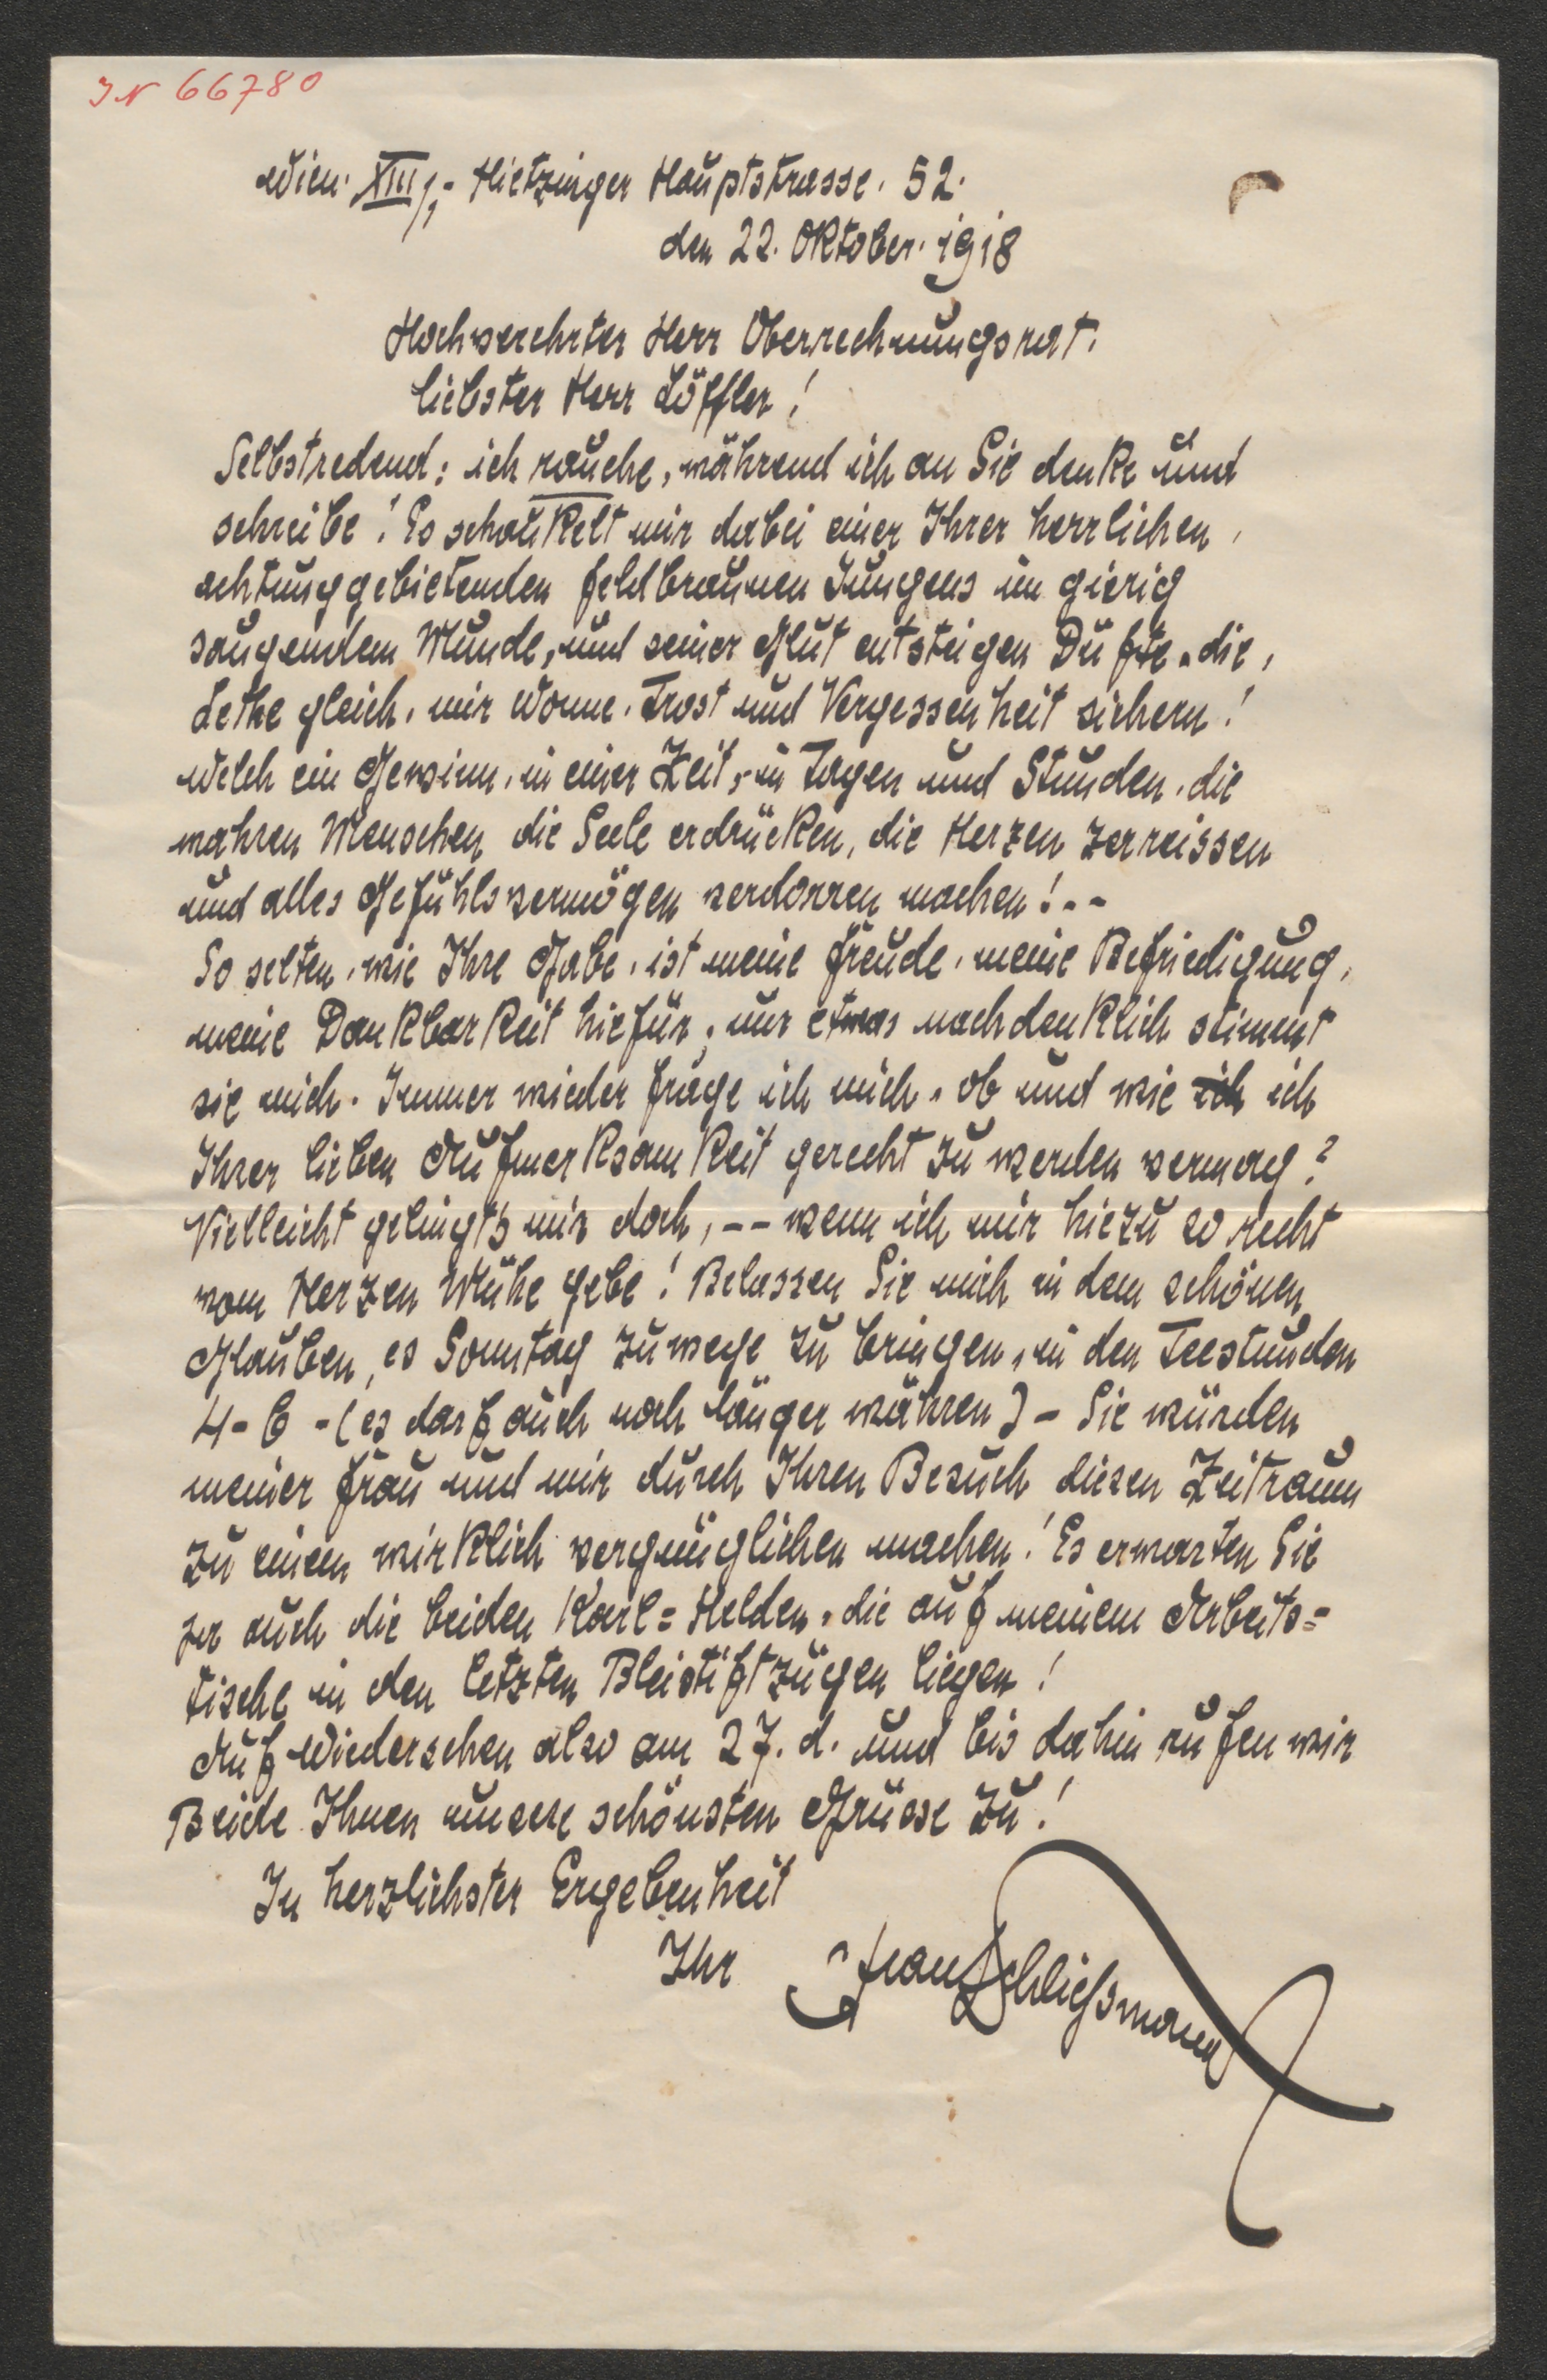 IN 66780
Wien. XIII/1,- Hietzinger Hauptstrasse. 52.
den 22. Oktober. 1918
Hochverehrter Herr Oberrechnungsrat.
liebster Herr Löffler!
Selbstredend: ich rauche, während ich an Sie denke und
schreibe! Es schaukelt mir dabei einer Ihrer herrlichen,
achtunggebietenden feldbraunen Jungens im gierig
saugendem Munde, und seiner Glut entsteigen Düfte, die,
Lethe gleich, mir Wonne, Trost und Vergessenheit sichern!
Welch ein Gewinn, in einer Zeit, in Tagen und Stunden, die
wahren Menschen die Seele erdrücken, die Herzen zerreissen
und alles Gefühlsvermögen verdorren machen! --
So selten, wie Ihre Gabe, ist meine Freude, meine Befriedigung,
meine Dankbarkeit hiefür; nur etwas nachdenklich stimmt
sie mich. Immer wieder frage ich mich, ob und wie ich ich
Ihrer lieben Aufmerksamkeit gerecht zu werden vermag?
Vielleicht gelingt's mir doch, -- wenn ich mir hiezu so recht
vom Herzen Mühe gebe! Belassen Sie mich in dem schönen
Glauben, es Sonntag zuwege zu bringen, in den Teestunden
4-6 - (es darf auch noch länger währen) - Sie würden
meiner Frau und mir durch Ihren Besuch diesen Zeitraum
zu einem wirklich vergnüglichen machen! Es erwarten Sie
ja auch die beiden Karl=Helden, die auf meinem Arbeits=
tische in den letzten Bleistiftzügen liegen!
Auf Wiedersehen also am 27. d. und bis dahin rufen wir
Beide Ihnen unsere schönsten Grüsse zu!
In herzlichster Ergebenheit
Ihr Hans Schliessmann